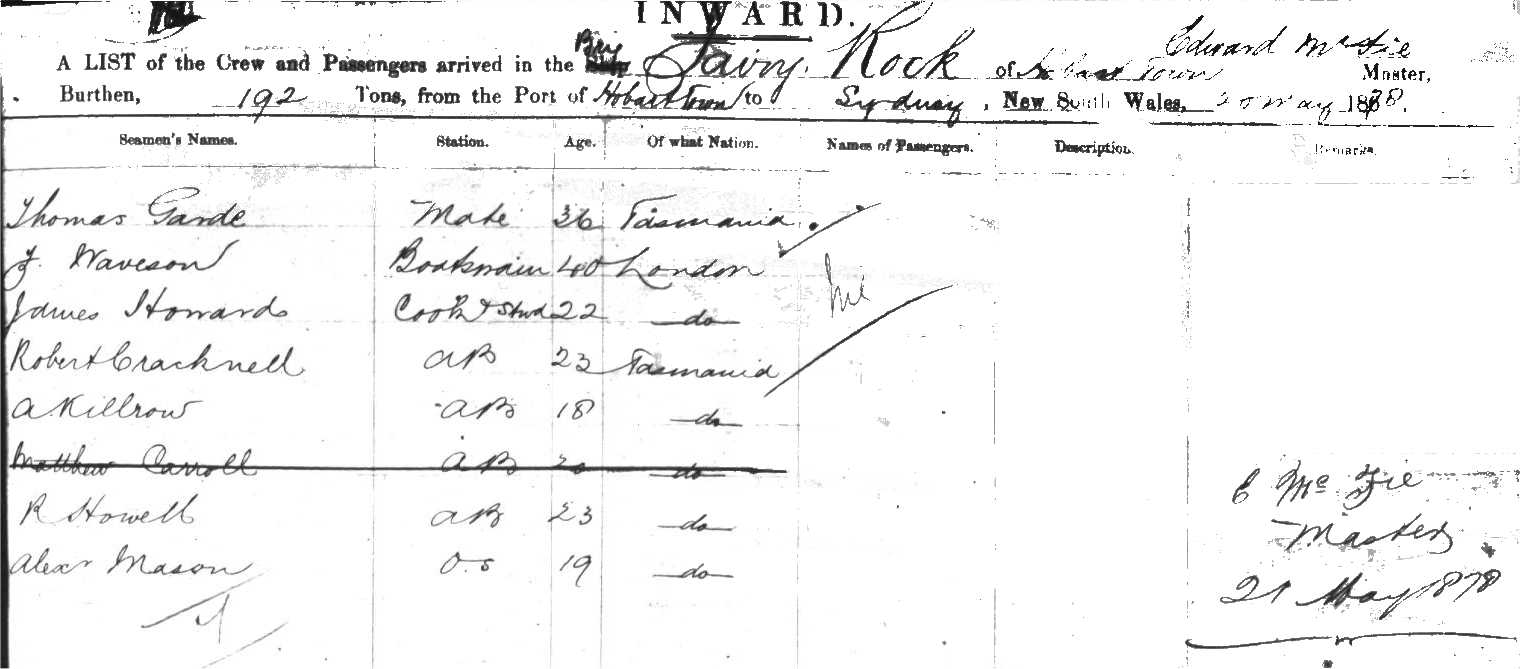 INWARD.
Edward McFie
A LIST of the Crew and Passengers arrived in the Brig Fairy Rock of Hobart Town Master,
Burthen, 192 Tons, from the Port of Hobart Town to Sydney, New South Wales, 20 May 1878.
Seamen's Names. Station. Age. Of what Nation. Names of Passengers. Description. Remarks.
Thomas Garde Mate 36 Tasmania
Waveson Boatswain 40 London
James Howards Cook & Stwd 22 do
nil
Robert Cracknell AB 23 Tasmania
A Killrow AB 18 do
Matthew Carroll AB 20 do
R Howell AB 23 do
Alexr Mason O.S 19 do
E McFie
Master
21 May 1878